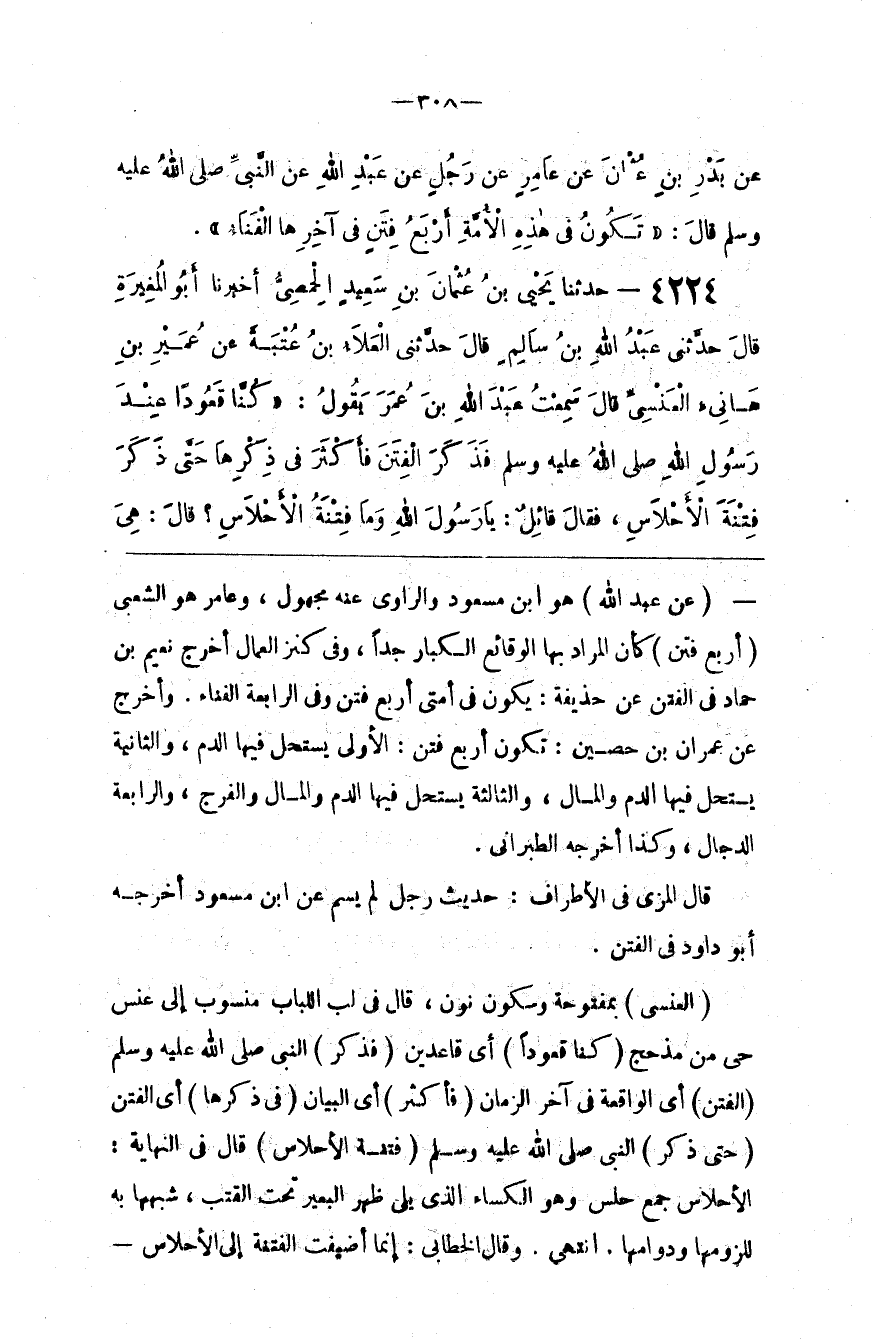 —٣٠٨—
عن بَدْرِ بنِ عُثْمَانَ عن عَامِرٍ عن رَجُلٍ عن عَبْدِ اللهِ عن النَّبىِّ صلى اللهُ عليه
وسلم قالَ : « تَـكُونُ فى هٰذِهِ الْأُمَّةِ أَرْبَعُ فِتَنٍ فى آخِرِهَا الْفَنَاءُ » .
٤٢٢٤ — حدثنا يَحْيٰى بنُ عُثْمَانَ بنِ سَعِيدٍ الْحِمْصِىُّ أخبرنا أَبُو الْمُغِيرَةِ
قالَ حدَّثنى عَبْدُ اللهِ بنُ سَالِمٍ قالَ حدَّثنى الْعَلاَءُ بنُ عُتْبَـةَ عن عُمَـيْرِ بنِ
هَـانِىءِ الْعَنْسِىِّ قالَ سَمِعْتُ عَبْدَ اللهِ بنَ عُمَرَ يَقُولُ : « كُنَّا قُعُودًا عِنْـدَ
رَسُولِ اللهِ صلى اللهُ عليه وسلم فَذَكَرَ الْفِتَنَ فأَكْثَرَ فى ذِكْرِهَا حَتَّى ذَكَرَ
فِتْنَةَ الْأَحْلاَسِ ، فقالَ قائِلٌ : يَارَسُولَ اللهِ وَمَا فِتْنَةُ الْأَحْلاَسِ ؟ قالَ : هِىَ
— ( عن عبد الله ) هو ابن مسعود والراوى عنه مجهول ، وعامر هو الشعبى
( أربع فتن ) كأن المراد بها الوقائع الـكبار جداً ، وفى كنز العمال أخرج نعيم بن
حماد فى الفتن عن حذيفة : يكون فى أمتى أربع فتن وفى الرابعة الفناء . وأخرج
عن عمران بن حصـين : تكون أربع فتن : الأولى يستحل فيها الدم ، والثانية
يـستحل فيها الدم والمـال ، والثالثة يستحل فيها الدم والمـال والفرج ، والرابعة
الدجال ، وكذا أخرجه الطبرانى .
قال المزى فى الأطراف : حديث رجل لم يسم عن ابن مسعود أخرجـه
أبو داود فى الفتن .
( العنسى ) بمفتوحة وسكون نون ، قال فى لب اللباب منسوب إلى عنس
حى من مذحج ( كنا قعوداً ) أى قاعدين ( فذكر ) النبى صلى الله عليه وسلم
(الفتن) أى الواقعة فى آخر الزمان ( فأكثر ) أى البيان ( فى ذكرها ) أى الفتن
( حتى ذكر ) النبى صلى الله عليه وسـلم ( فتنـة الأحلاس ) قال فى النهاية :
الأحلاس جمع حلس وهو الـكساء الذى يلى ظهر البعير تحت القتب ، شبهها به
للزومها ودوامها . انتهى . وقال الخطابى : إنما أضيفت الفتنة إلى الأحلاس —